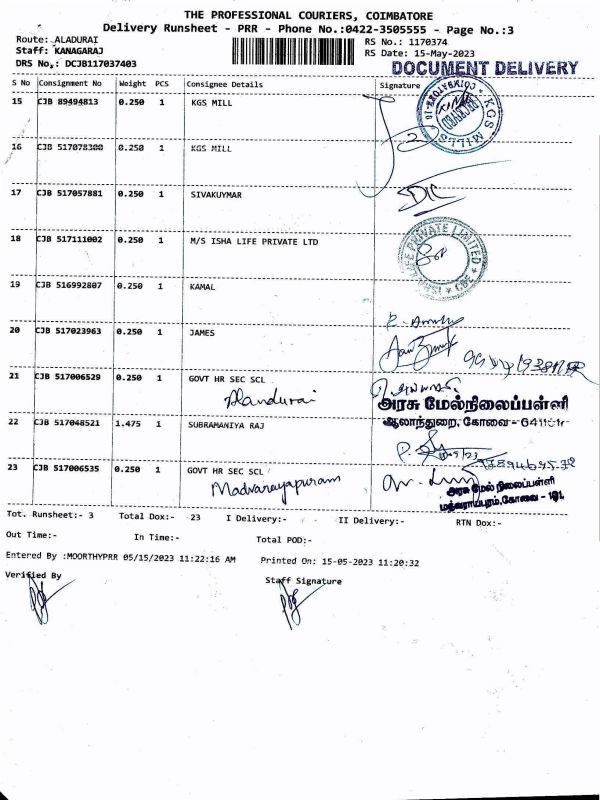 THE PROFESSIONAL COURIERS, COIMBATORE
Delivery Runsheet - PRR - Phone No.:0422-3505555 - Page No.:3
Route: ALADURAI
RS No.: 1170374
Staff: KANAGARAJ
RS Date: 15-May-2023
DRS No,: DCJB117037403
DOCUMENT DELIVERY
S No Consignment No Weight PCS Consignee Details Signature
15 CJB 89494813 0.250 1 KGS MILL
KGS MILLS
16 CJB 517078300 0.250 1 KGS MILL
17 CJB 517057881 0.250 1 SIVAKUYMAR
18 CJB 517111002 0.250 1 M/S ISHA LIFE PRIVATE LTD
PRIVATE LIMITED
CBE
19 CJB 516992807 0.250 1 KAMAL
20 CJB 517023963 0.250 1 JAMES
21 CJB 517006529 0.250 1 GOVT HR SEC SCL
Alandurai
அரசு மேல்நிலைப்பள்ளி
ஆலாந்துறை, கோவை - 641101
22 CJB 517048521 1.475 1 SUBRAMANIYA RAJ
23 CJB 517006535 0.250 1 GOVT HR SEC SCL
Madvarayapuram
அரசு மேல் நிலைப்பள்ளி
மத்வராயபுரம், கோவை - 101
Tot. Runsheet:- 3 Total Dox:- 23 I Delivery:- II Delivery:- RTN Dox:-
Out Time:- In Time:- Total POD:-
Entered By :MOORTHYPRR 05/15/2023 11:22:16 AM Printed On: 15-05-2023 11:20:32
Verified By Staff Signature